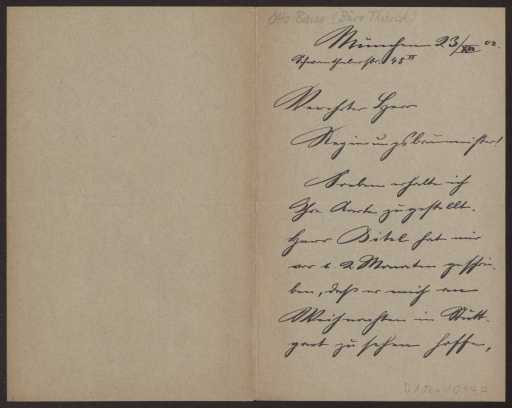 Otto Bauer (Büro Thiersch)
München 23/XII 02.
Schwanthalerstr. 48 II
Verehrter Herr
Regierungsbaumeister!
Soeben erhalte ich
Ihre Karte zugestellt.
Herr Bihl hat mir
vor 2 Monaten geschrie-
ben, daß er mich an
Weihnachten in Stutt-
gart zu sehen hoffe,